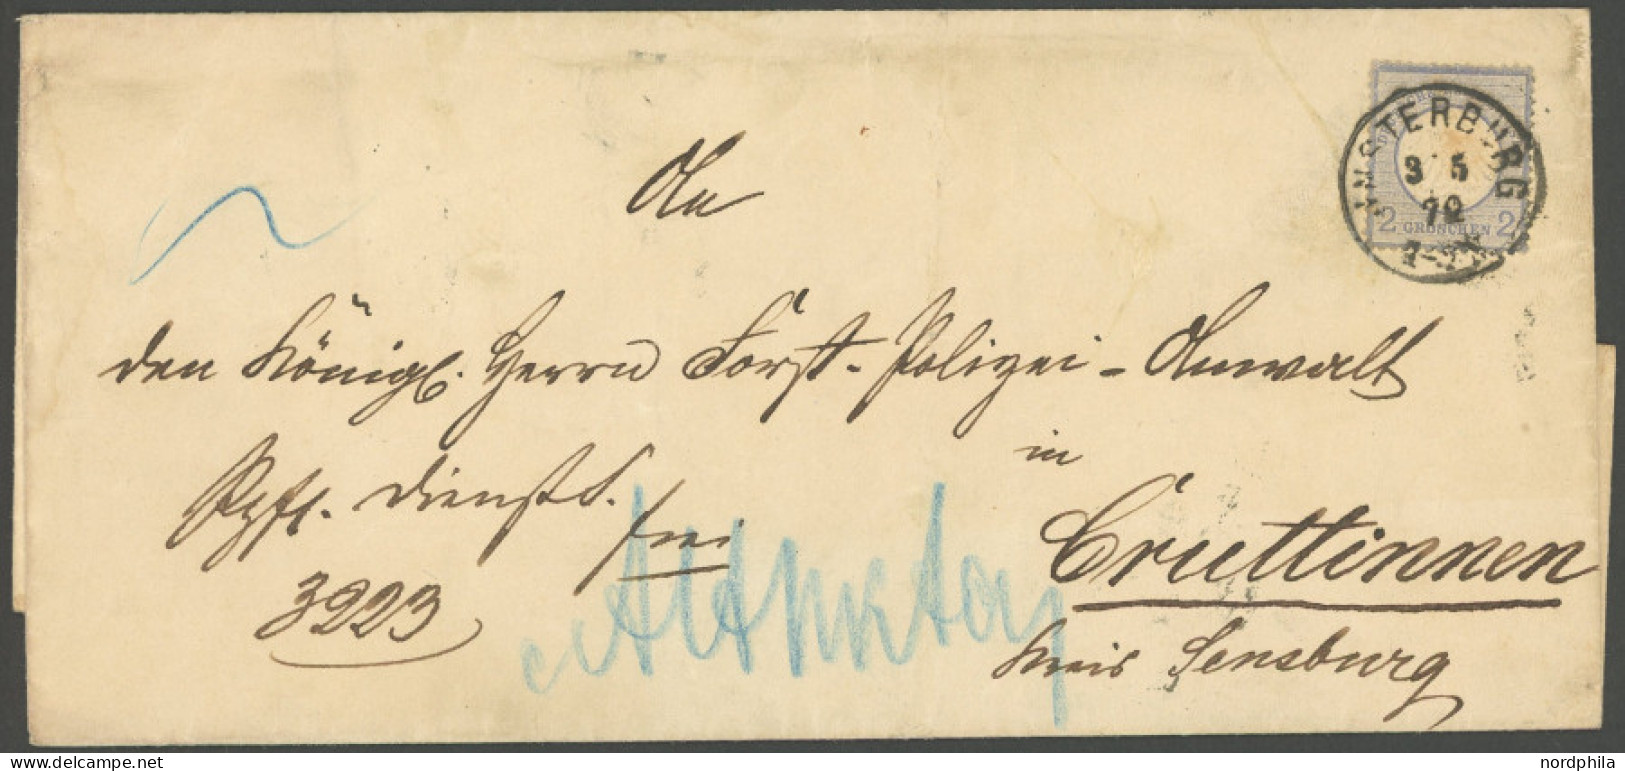 INSTERBURG
3 5
72
2 GROSCHEN 2
An
den Königl. Herrn Forst-Polizei-Anwalt
in
Cruttinnen
Kreis Sensburg
Pflt. Diensts.
frei
3223
nordphila